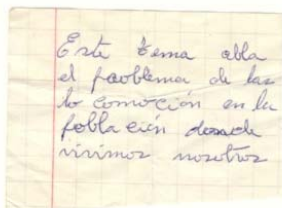 Este tema abla
el problema de las
lo comoción en la
poblacion donde
vivimos nosotros